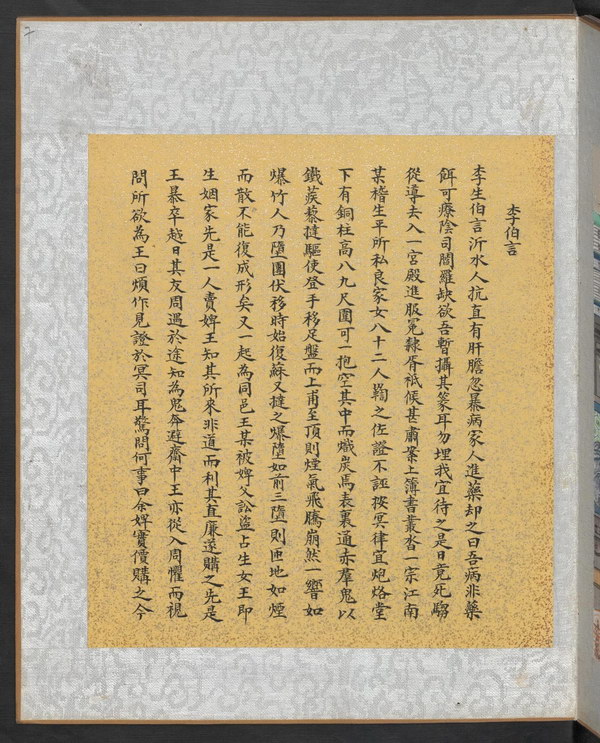 李伯言
李生伯言沂水人抗直有肝膽忽暴病家人進藥却之曰吾病非藥
餌可療陰司閻羅缺欲吾暫攝其篆耳勿埋我宜待之是日竟死騶
從導去入一宮殿進服冕隸胥袛候甚肅案上簿書叢沓一宗江南
某稽生平所私良家女八十二人鞫之佐證不誣按冥律宜炮烙堂
下有銅柱高八九尺圍可一抱空其中而熾炭焉表裏通赤羣鬼以
鐵蒺藜撻驅使登手移足盤而上甫至頂則煙氣飛騰崩然一響如
爆竹人乃墮團伏移時始復蘇又撻之爆墮如前三墮則匝地如煙
而散不能復成形矣又一起為同邑王某被婢父訟盜占生女王即
生姻家先是一人賣婢王知其所來非道而利其直廉遂購之先是
王暴卒越日其友周遇於途知為鬼奔避齋中王亦從入周懼而視
問所欲為王曰煩作見證於冥司耳驚問何事曰余婢實價購之今